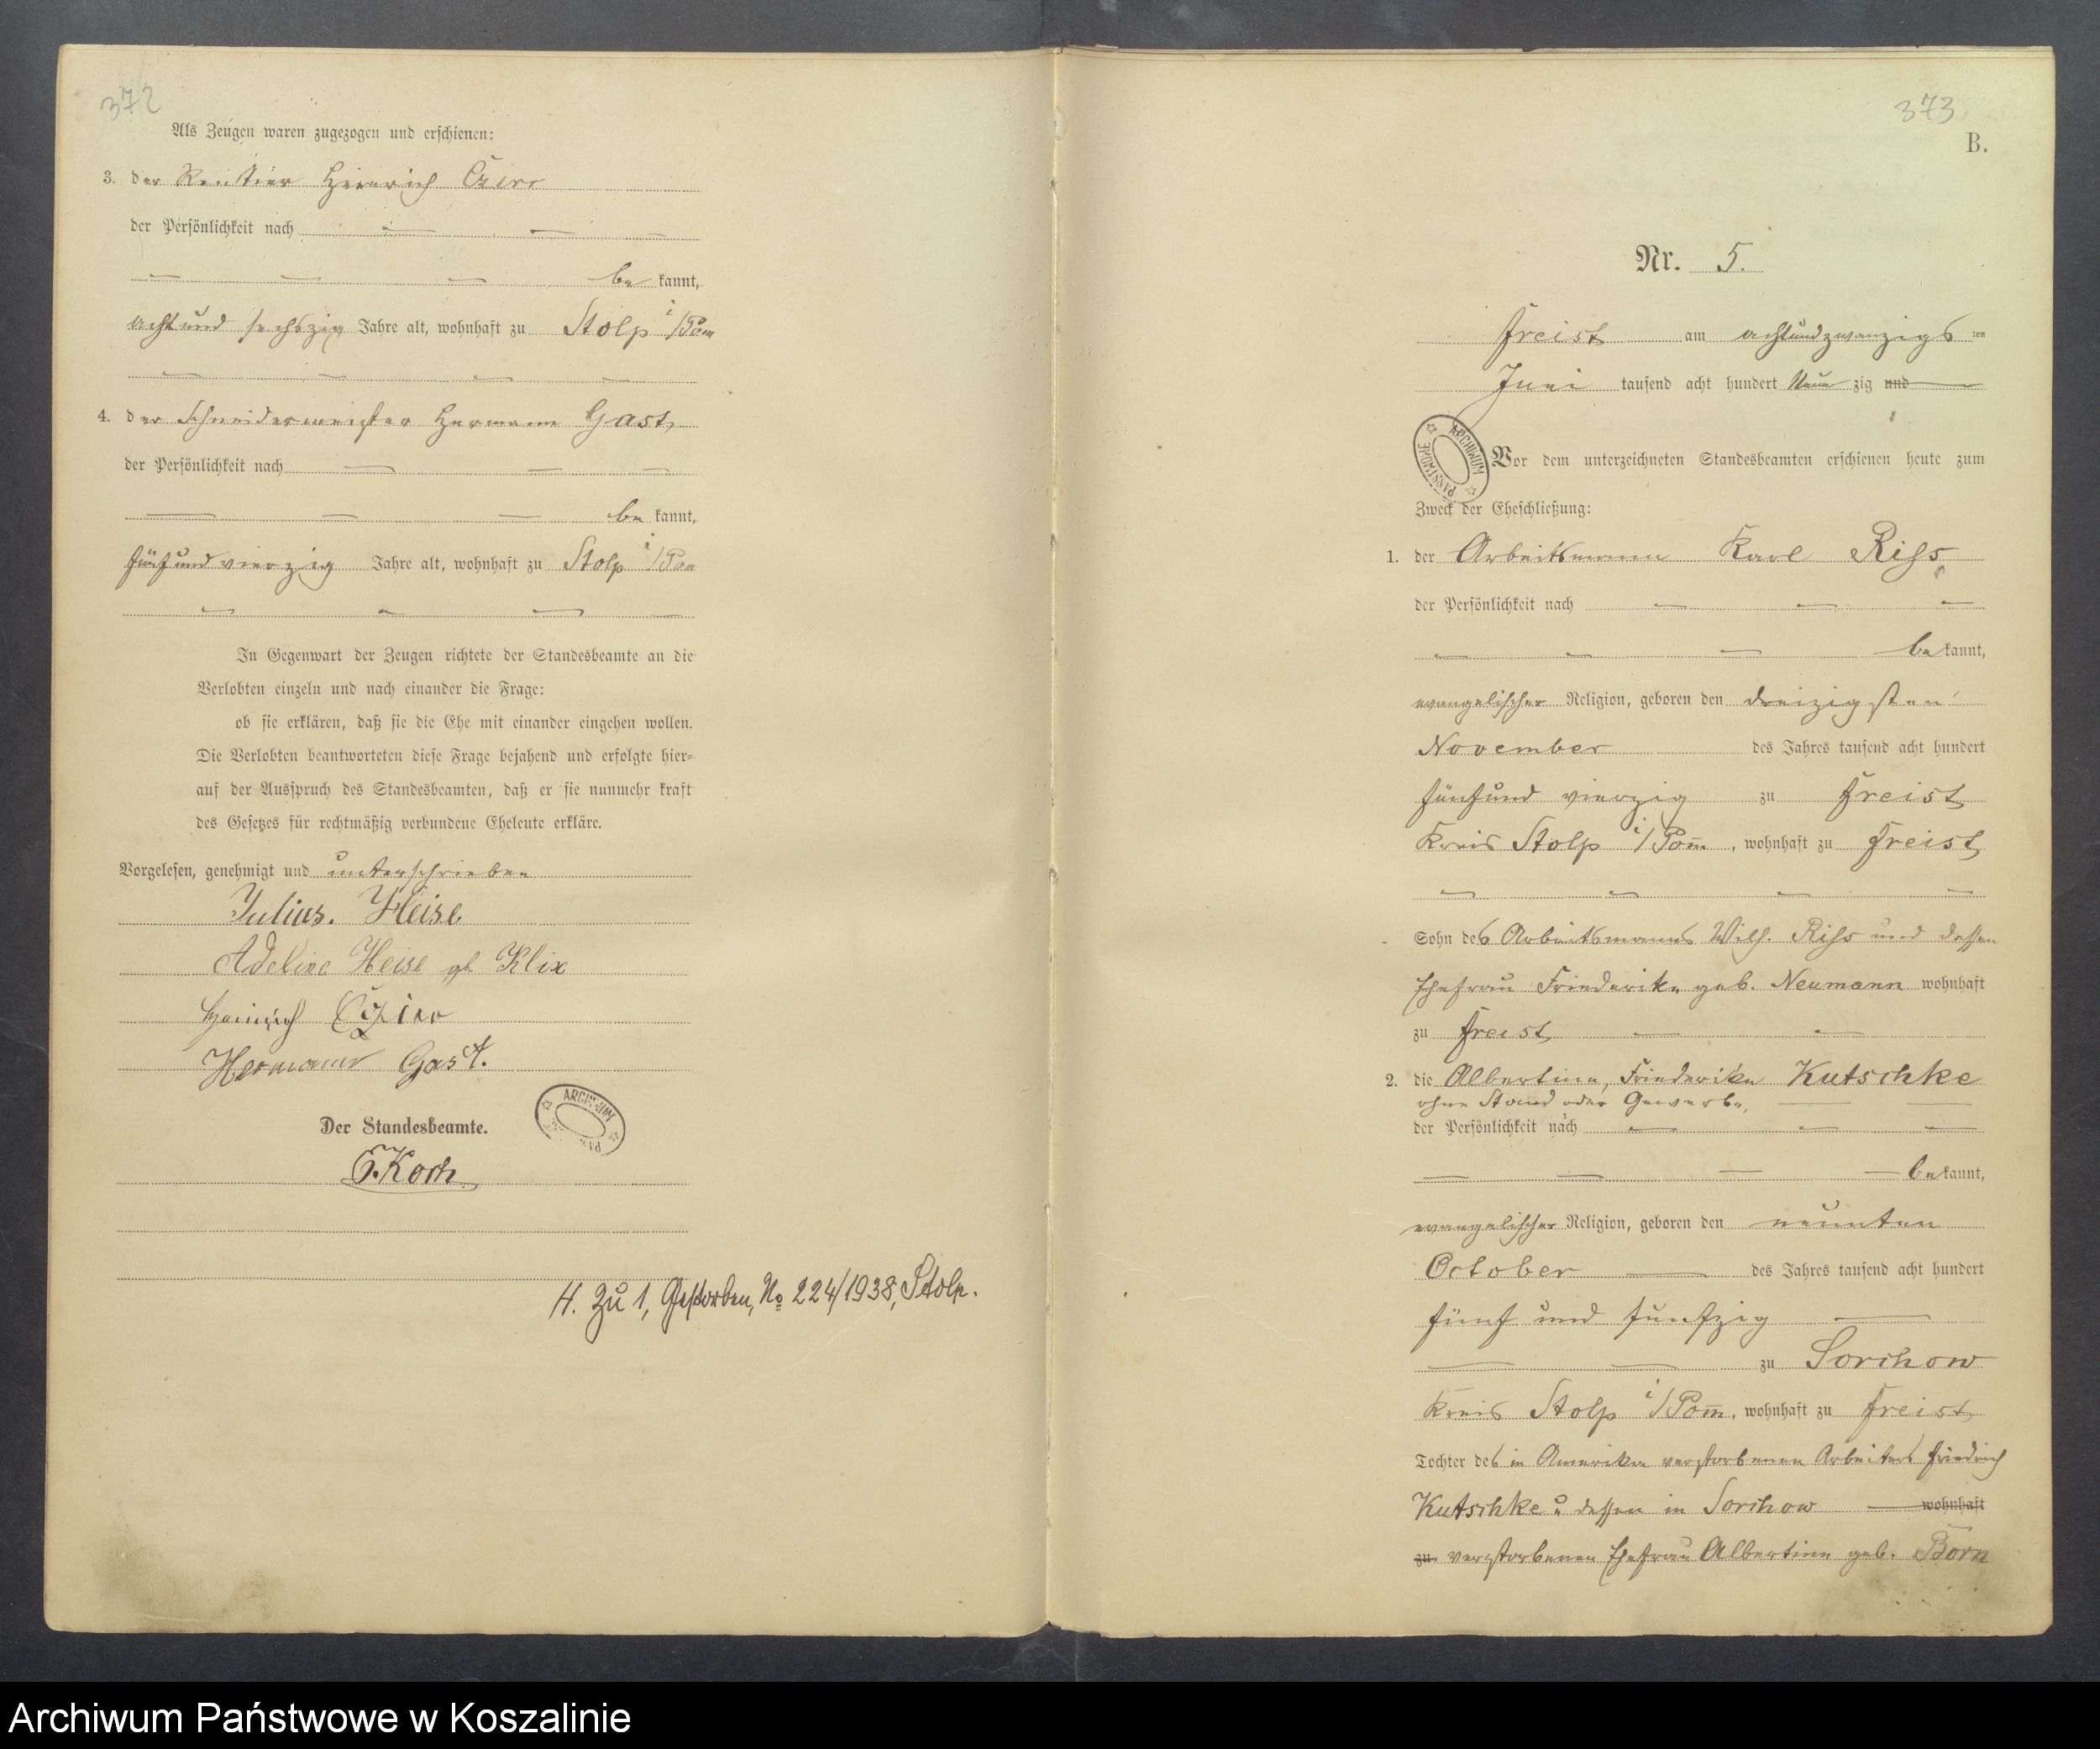 372
Als Zeugen waren zugezogen und erschienen:
3. der Rentier Heinrich
der Persönlichkeit nach
be kannt,
acht und sechszig Jahre alt, wohnhaft zu Stolp i/Pom
4. der Schneidermeister Hermann Gast,
der Persönlichkeit nach
be kannt,
fünf und vierzig Jahre alt, wohnhaft zu Stolp i/Pom
In Gegenwart der Zeugen richtete der Standesbeamte an die
Verlobten einzeln und nach einander die Frage:
ob sie erklären, daß sie die Ehe mit einander eingehen wollen.
Die Verlobten beantworteten diese Frage bejahend und erfolgte hier-
auf der Ausspruch des Standesbeamten, daß er sie nunmehr kraft
des Gesetzes für rechtmäßig verbundene Eheleute erkläre.
Vorgelesen, genehmigt und unterschrieben
Julius. Heise
Adeline Heise gb Klix
Heinrich
Hermann Gast.
ARCHIWUM
Der Standesbeamte.
Koch
H. Zu 1, Gestorben, No 224/1938, Stolp.
373
B.
Nr. 5.
Freist am achtundzwanzigs ten
Juni tausend acht hundert Neun zig und
ARCHIWUM PAŃSTWOWE
Vor dem unterzeichneten Standesbeamten erschienen heute zum
Zweck der Eheschließung:
1. der Arbeitsmann Karl Riss
der Persönlichkeit nach
be kannt,
evangelischer Religion, geboren den dreizigsten
November des Jahres tausend acht hundert
fünfund vierzig zu Freist
Kreis Stolp i/Pom̅, wohnhaft zu Freist
Sohn des Arbeitsmanns Wilh. Riss und dessen
Ehefrau Friederike geb. Neumann wohnhaft
zu Freist
2. die Albertine, Friederike Kutschke
ohne Stand oder Gewerbe,
der Persönlichkeit nach
be kannt,
evangelischer Religion, geboren den neunten
October des Jahres tausend acht hundert
fünf und funfzig
zu Sorchow
Kreis Stolp i/Pom̅, wohnhaft zu Freist
Tochter des in Amerika verstorbenen Arbeiters Friedrich
Kutschke u dessen in Sorchow wohnhaft
zu verstorbenen Ehefrau Albertine geb. Born
Archiwum Państwowe w Koszalinie